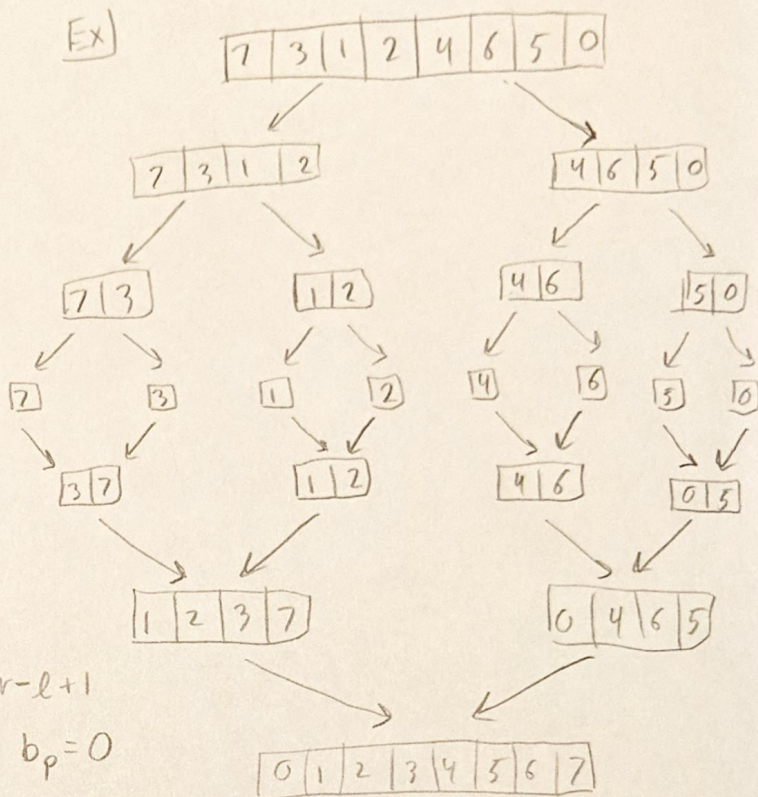 Ex)
7 3 1 2 4 6 5 0
7 3 1 2 4 6 5 0
7 3 1 2 4 6 5 0
7 3 1 2 4 6 5 0
3 7 1 2 4 6 0 5
1 2 3 7 0 4 6 5
r-l+1
b_p = 0
0 1 2 3 4 5 6 7